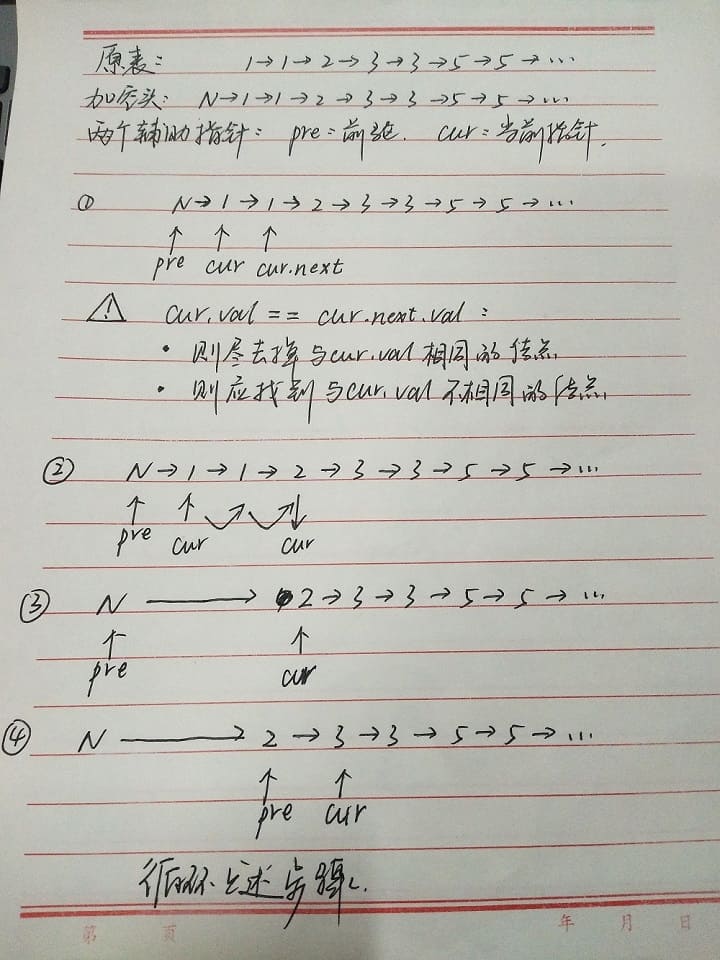 原表: 1→1→2→3→3→5→5→…
加空头: N→1→1→2→3→3→5→5→…
两个辅助指针: pre=前驱. cur=当前指针.
① N→1→1→2→3→3→5→5→…
↑ ↑ ↑
pre cur cur.next
⚠ cur.val == cur.next.val:
· 则尽去掉与cur.val相同的结点.
· 则应找到与cur.val不相同的结点.
② N→1→1→2→3→3→5→5→…
↑ ↑ ↓
pre cur cur
③ N→2→3→3→5→5→…
↑ ↑
pre cur
④ N→2→3→3→5→5→…
↑ ↑
pre cur
循环上述步骤.
第 页 年 月 日